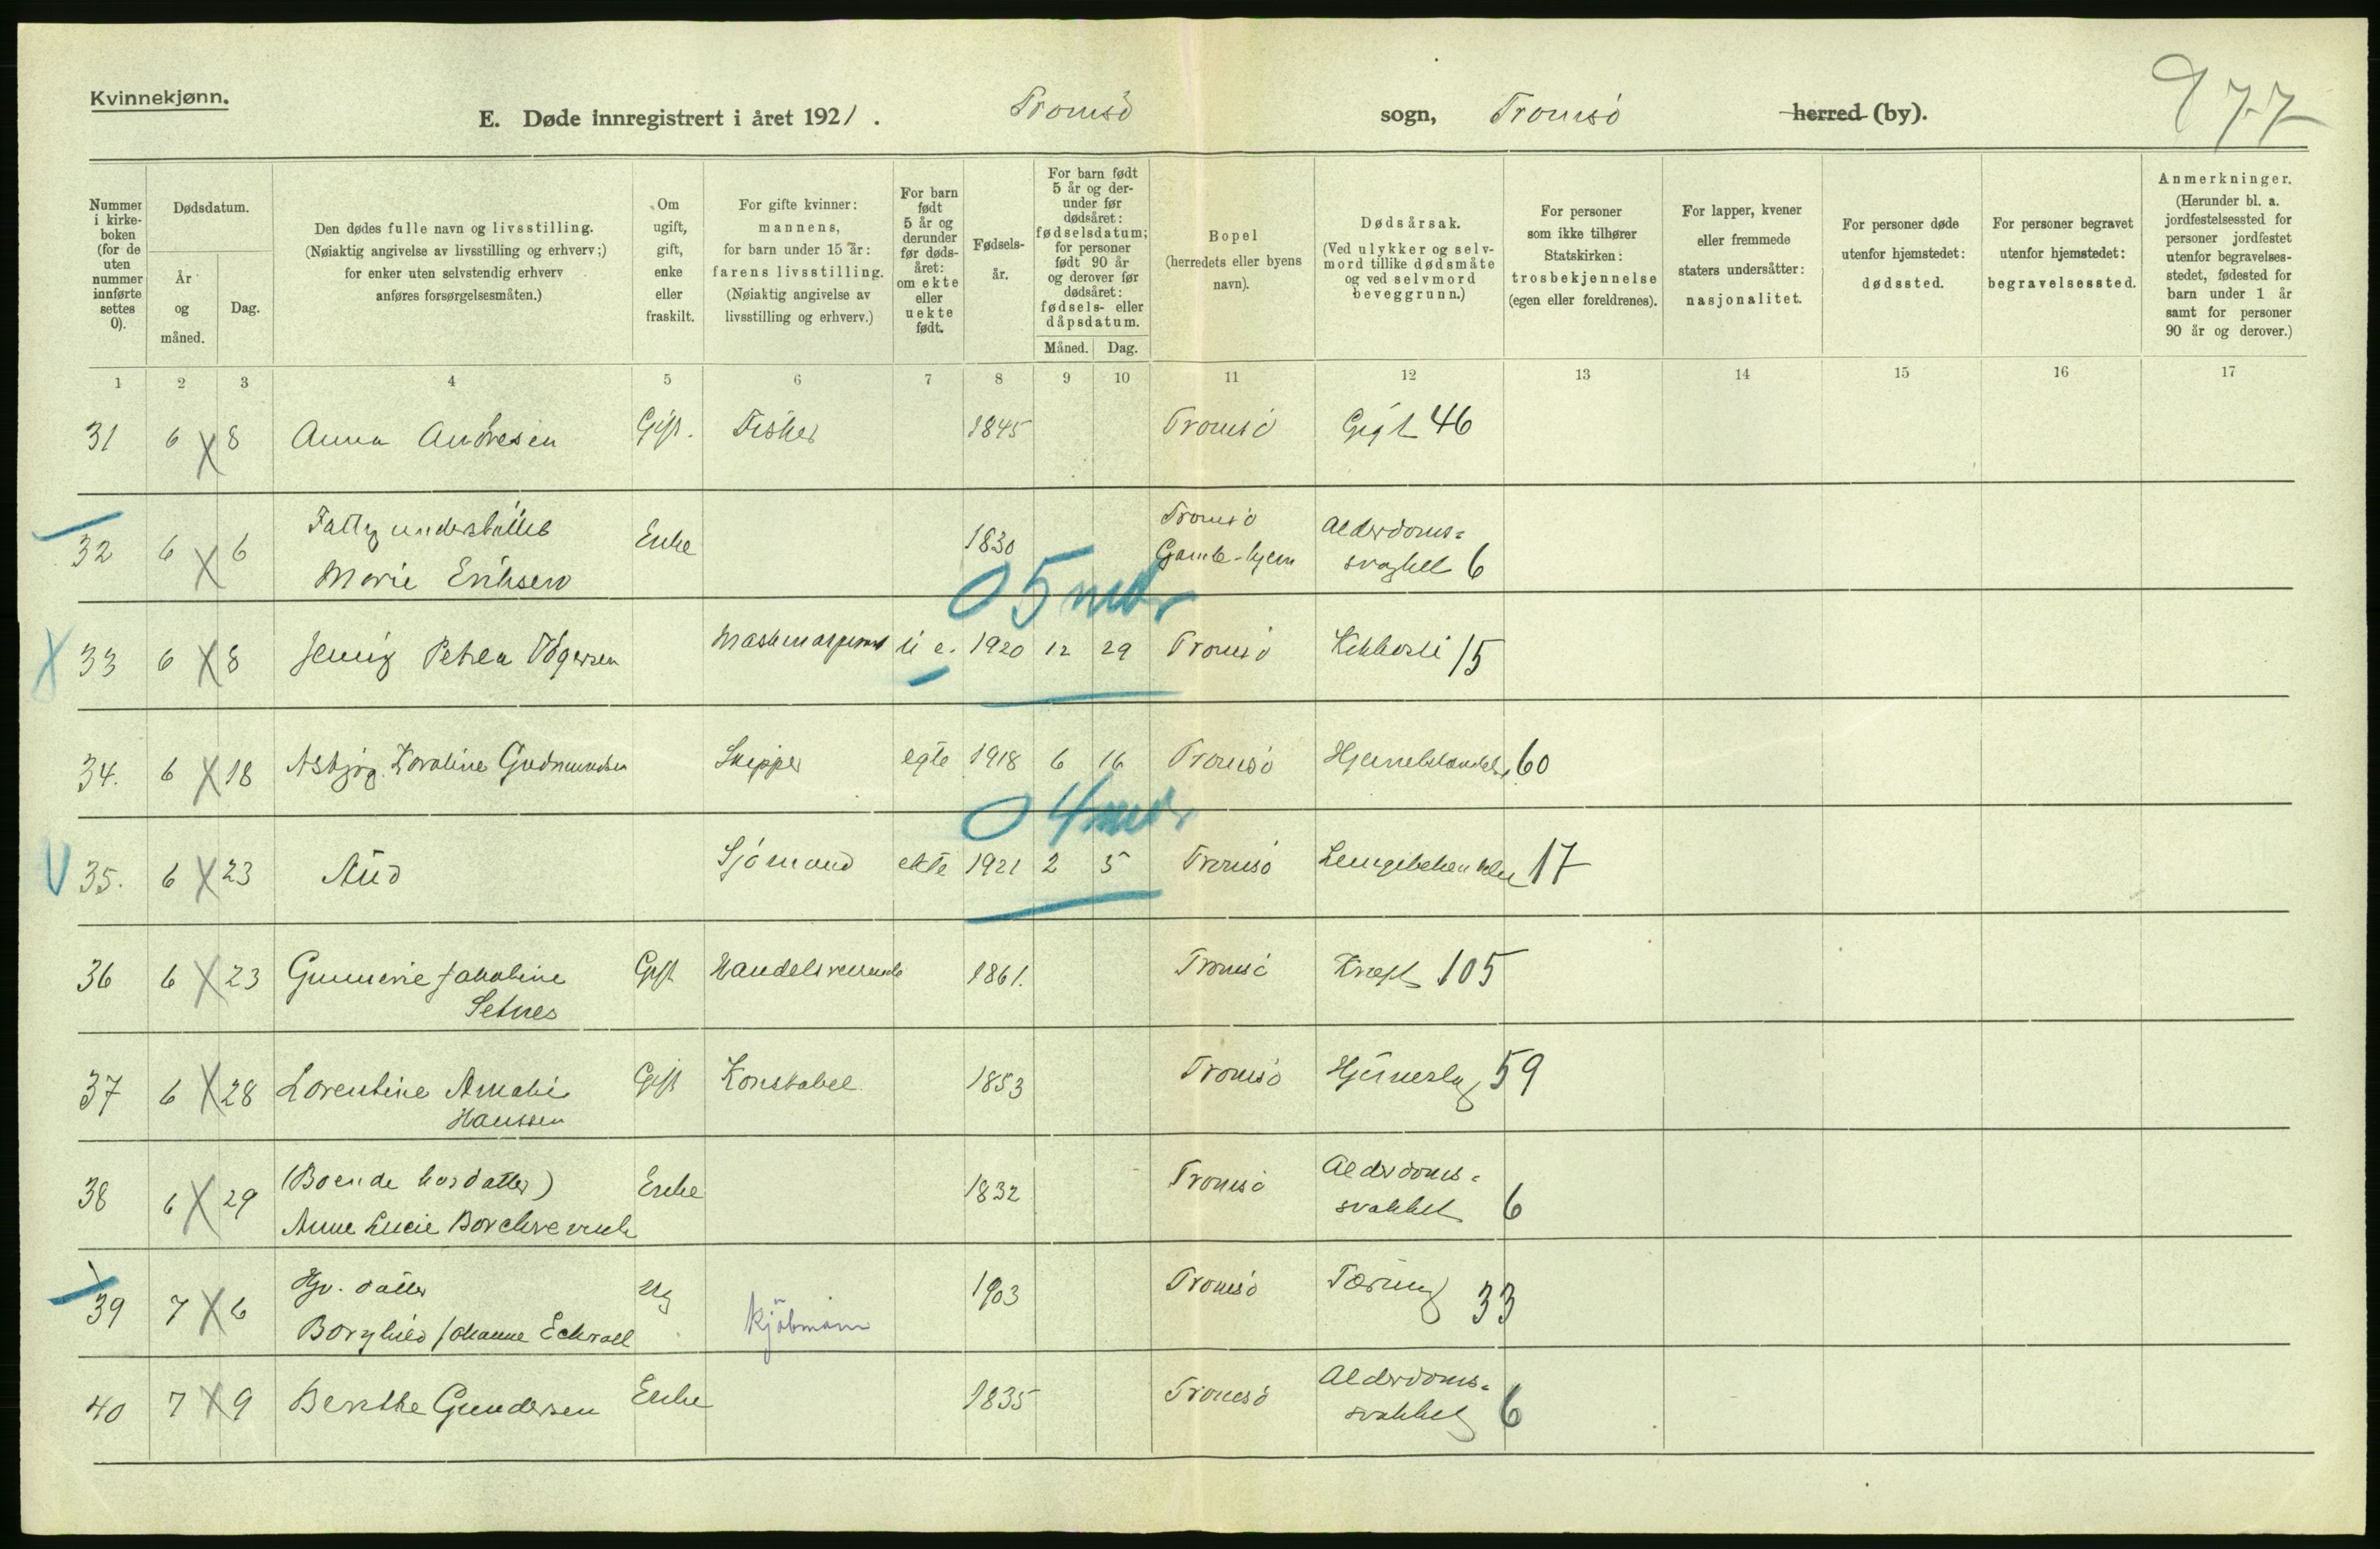 Kvinnekjønn.
E. Døde innregistrert i året 1921. Tromsø sogn, Tromsø herred (by).
977
Nummer i kirkeboken (for de uten nummer innførte settes 0).
Dødsdatum.
År og måned.
Dag.
Den dødes fulle navn og livsstilling. (Nøiaktig angivelse av livsstilling og erhverv;) for enker uten selvstendig erhverv anføres forsørgelsesmåten.)
Om ugift, gift, enke eller fraskilt.
For gifte kvinner: mannens, for barn under 15 år: farens livsstilling. (Nøiaktig angivelse av livsstilling og erhverv.)
For barn født 5 år og derunder før dødsåret: om ekte eller uekte født.
Fødselsår.
For barn født 5 år og derunder før dødsåret: fødselsdatum; for personer født 90 år og derover før dødsåret: fødsels- eller dåpsdatum.
Måned. Dag.
Bopel (herredets eller byens navn).
Dødsårsak. (Ved ulykker og selvmord tillike dødsmåte og ved selvmord beveggrunn.)
For personer som ikke tilhører Statskirken: trosbekjennelse (egen eller foreldrenes).
For lapper, kvener eller fremmede staters undersåtter: nasjonalitet.
For personer døde utenfor hjemstedet: dødssted.
For personer begravet utenfor hjemstedet: begravelsessted.
Anmerkninger. (Herunder bl. a. jordfestelsessted for personer jordfestet utenfor begravelsesstedet, fødested for barn under 1 år samt for personer 90 år og derover.)
1 2 3 4 5 6 7 8 9 10 11 12 13 14 15 16 17
31 6 8 Anna Andresen Gift. Fisker 1845 Tromsø Gigt 46
32 6 6 Fattigunderstøttet Marie Eriksen Enke 1830 Tromsø Gamle-hjem Alderdoms-svaghet 6
05 mdr
33 6 8 Jenny Petrea u e. 1920 12 29 Tromsø Kikhoste 15
34. 6 18 Asbjørg Karoline Gudmundsen Skipper egte 1918 6 16 Tromsø 60
04 mdr
35. 6 23 Aud Sjømand ekte 1921 2 5 Tromsø 17
36 6 23 Gunnerie Jakobine Setnes Gift 1861. Tromsø Kræft 105
37 6 28 Lorentine Amalie Hanssen Gift Konstabel 1853 Tromsø Hjerneslag 59
38 6 29 (Boende hos datter) Anne Lucie Borchrevink Enke 1832 Tromsø Alderdoms-svakhet 6
39 7 6 Hjv. datter Borghild Johanne Ug kjøbmann 1903 Tromsø Tæring 33
40 7 9 Benthe Gundersen Enke 1835 Tromsø Alderdoms-svakhet 6